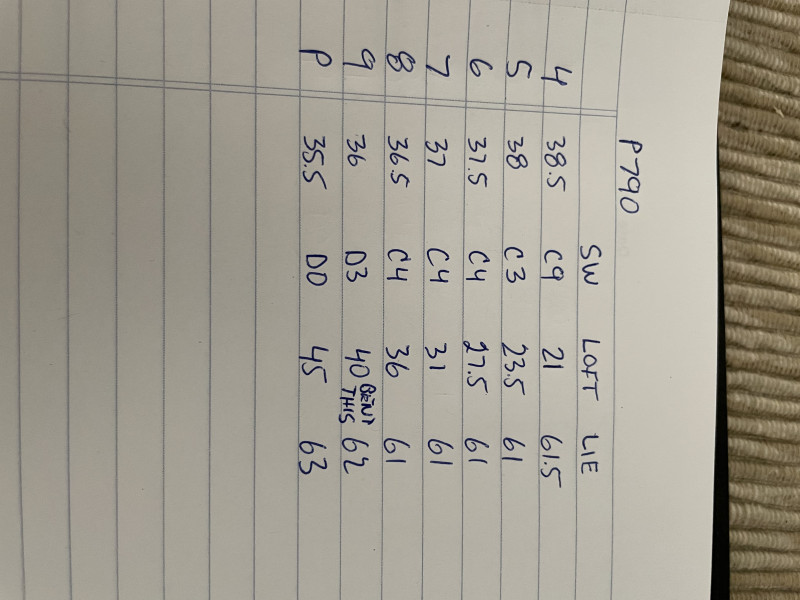 P790
SW LOFT LIE
4 38.5 C9 21 61.5
5 38 C3 23.5 61
6 37.5 C4 27.5 61
7 37 C4 31 61
8 36.5 C4 36 61
9 36 D3 40 BENT THIS 62
P 35.5 D0 45 63